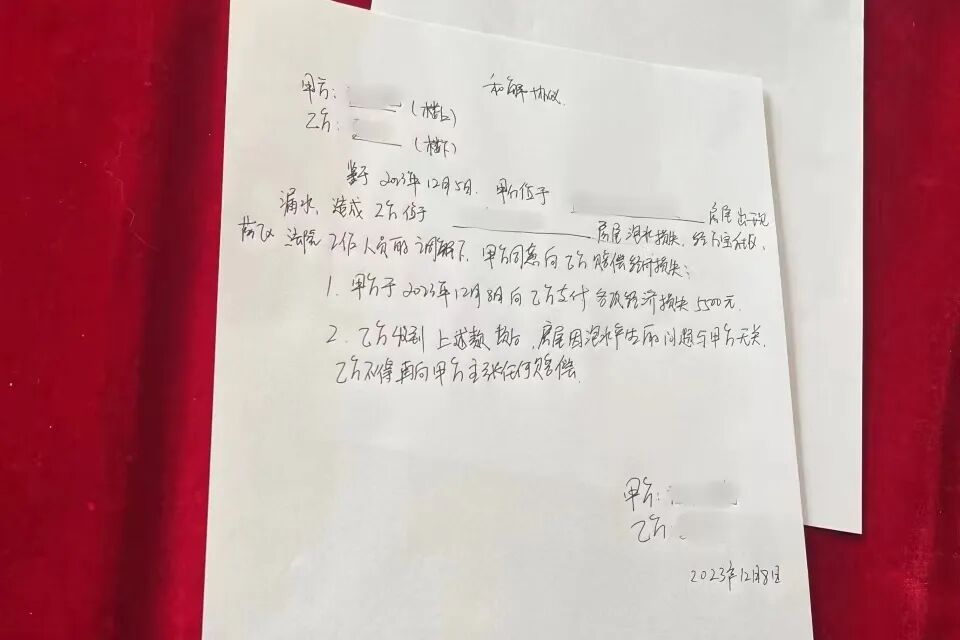 和解协议
甲方：(楼上)
乙方：(楼下)
鉴于2023年12月5日，甲方位于 房屋出现
漏水，造成乙方位于 房屋泡水损失，经
法院工作人员的调解下，甲方同意向乙方赔偿经济损失：
1. 甲方于2023年12月8日向乙方支付各项经济损失5500元
2. 乙方收到上述款项后，房屋因泡水产生的问题与甲方无关，
乙方不得再向甲方主张任何赔偿。
甲方：
乙方：
2023年12月8日